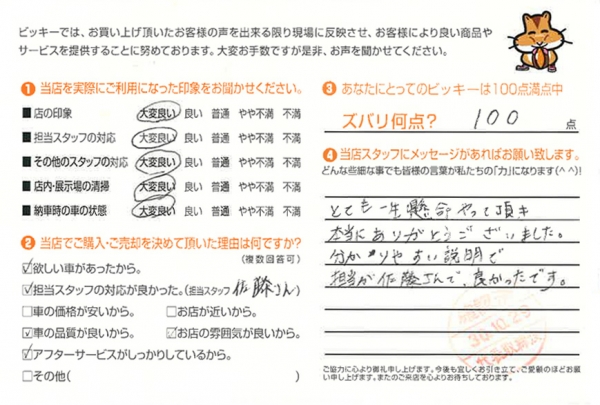 ビッキーでは、お買い上げ頂いたお客様の声を出来る限り現場に反映させ、お客様により良い商品や
サービスを提供することに努めております。大変お手数ですが是非、お声を聞かせてください。
❶ 当店を実際にご利用になった印象をお聞かせください。
■ 店の印象 大変良い 良い 普通 やや不満 不満
■ 担当スタッフの対応 大変良い 良い 普通 やや不満 不満
■ その他のスタッフの対応 大変良い 良い 普通 やや不満 不満
■ 店内・展示場の清掃 大変良い 良い 普通 やや不満 不満
■ 納車時の車の状態 大変良い 良い 普通 やや不満 不満
❷ 当店でご購入・ご売却を決めて頂いた理由は何ですか?
(複数回答可)
☑欲しい車があったから。
☑担当スタッフの対応が良かった。(担当スタッフ 佐藤さん)
□車の価格が安いから。 □お店が近いから。
☑車の品質が良いから。 ☑お店の雰囲気が良いから。
☑アフターサービスがしっかりしているから。
□その他( )
❸ あなたにとってのビッキーは100点満点中
ズバリ何点? 100 点
❹ 当店スタッフにメッセージがあればお願い致します。
どんな些細な事でも皆様の言葉が私たちの「力」になります(^^)!
とても一生懸命やって頂き
本当にありがとうございました。
分かりやすい説明で
担当が佐藤さんで、良かったです。
30.10.25
ご協力に心より御礼申し上げます。今後も宜しくお引き立て、ご愛顧のほどお願
い申し上げます。またのご来店を心よりお待ちしております。